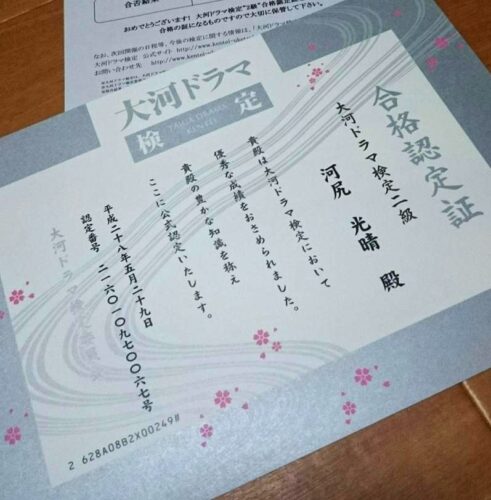 合否結果
おめでとうございます! 大河ドラマ検定"2級"合格認定証
合格の証になるものですので大切に保管して下さい。
なお、次回開催の日程等、今後の検定に関する情報は、
大河ドラマ検定 公式サイト http://www.kentei-
お問い合わせ先 http://www.
大河ドラマ
検 定
TAIGA DORAMA
KENTEI
合格認定証
大河ドラマ検定二級
河尻 光晴 殿
貴殿は大河ドラマ検定において
優秀な成績をおさめられました。
貴殿の豊かな知識を称え
ここに公式認定いたします。
平成二十八年五月二十九日
認定番号 二一六〇一〇九七〇〇六七号
大河ドラマ検定
2 628A08B2X00249#